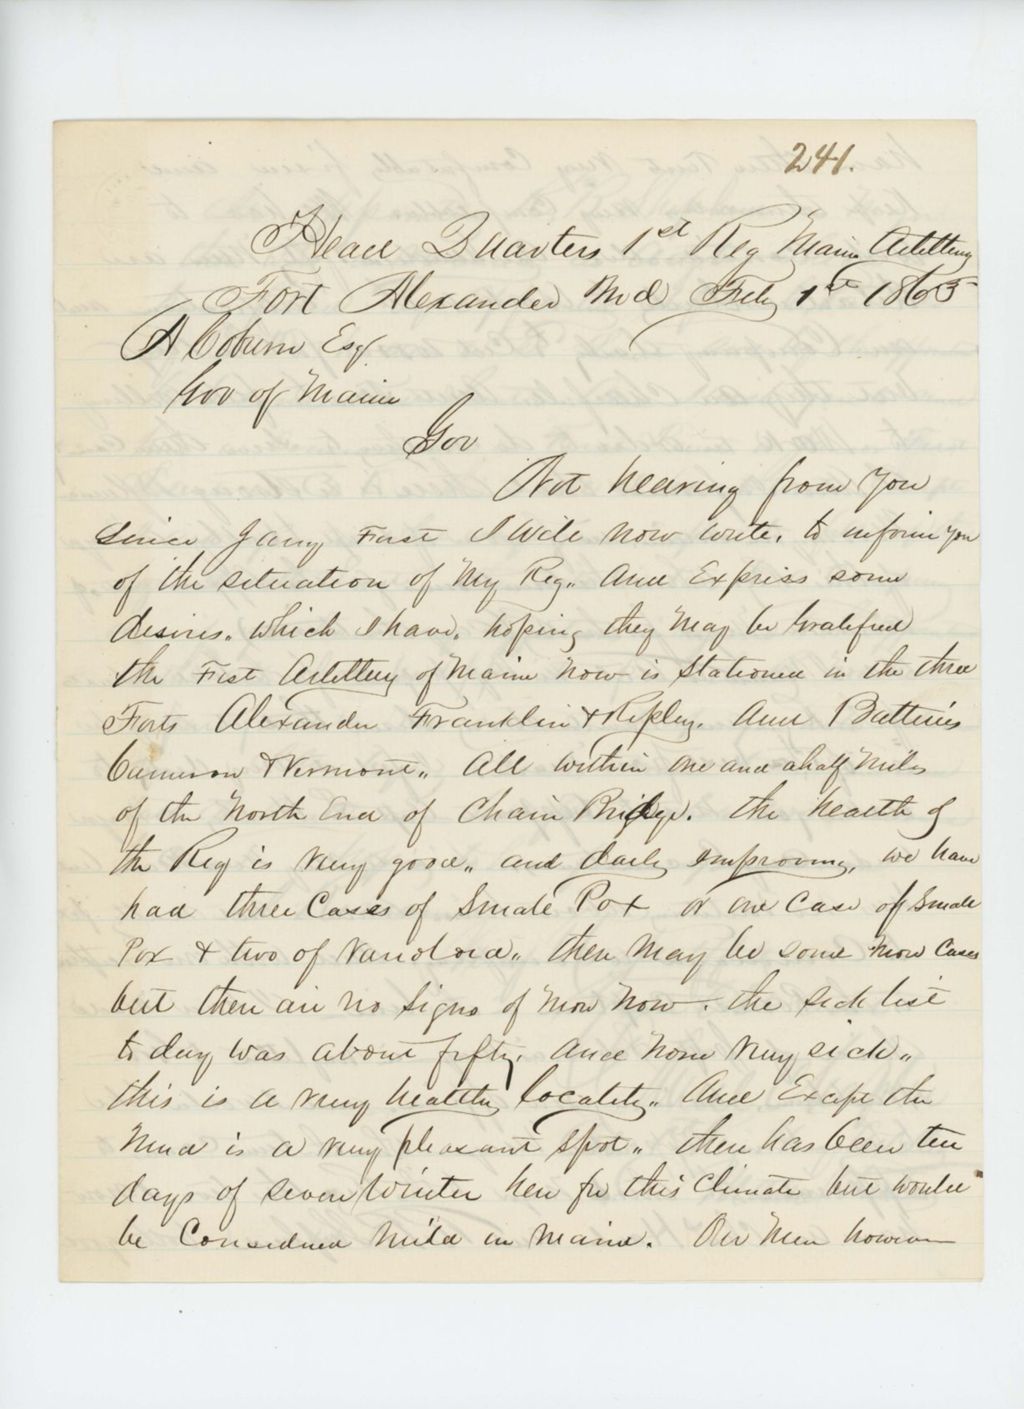 241.
Head Quarters 1st Reg Maine Artillery
Fort Alexander Md Feby 1st 1863
A Coburn Esq
Gov of Maine
Gov
Not hearing from you
since Jany First I will now write, to inform you
of the situation of My Reg,, And Express some
desires. which I have. hoping they May be Gratified
the First Artillery of Maine Now is Stationed in the three
Forts Alexander Franklin & Ripley. And Batteries
Cameron & Vermont,, All within one and a half Miles
of the North End of Chain Bridge. the health of
the Reg is very good,, and daily improving, we have
had three Cases of Small Pox or one Case of Small
Pox & two of Varioloid,, there May be some More Cases
but there are no signs of More Now. the sick list
to day was about fifty. And None very sick,,
this is a very healthy locality,, And Except the
Mud is a very pleasant spot,, there has been ten
days of seven Winter here for this Climate but would
be Considered Mild in Maine. Our Men however